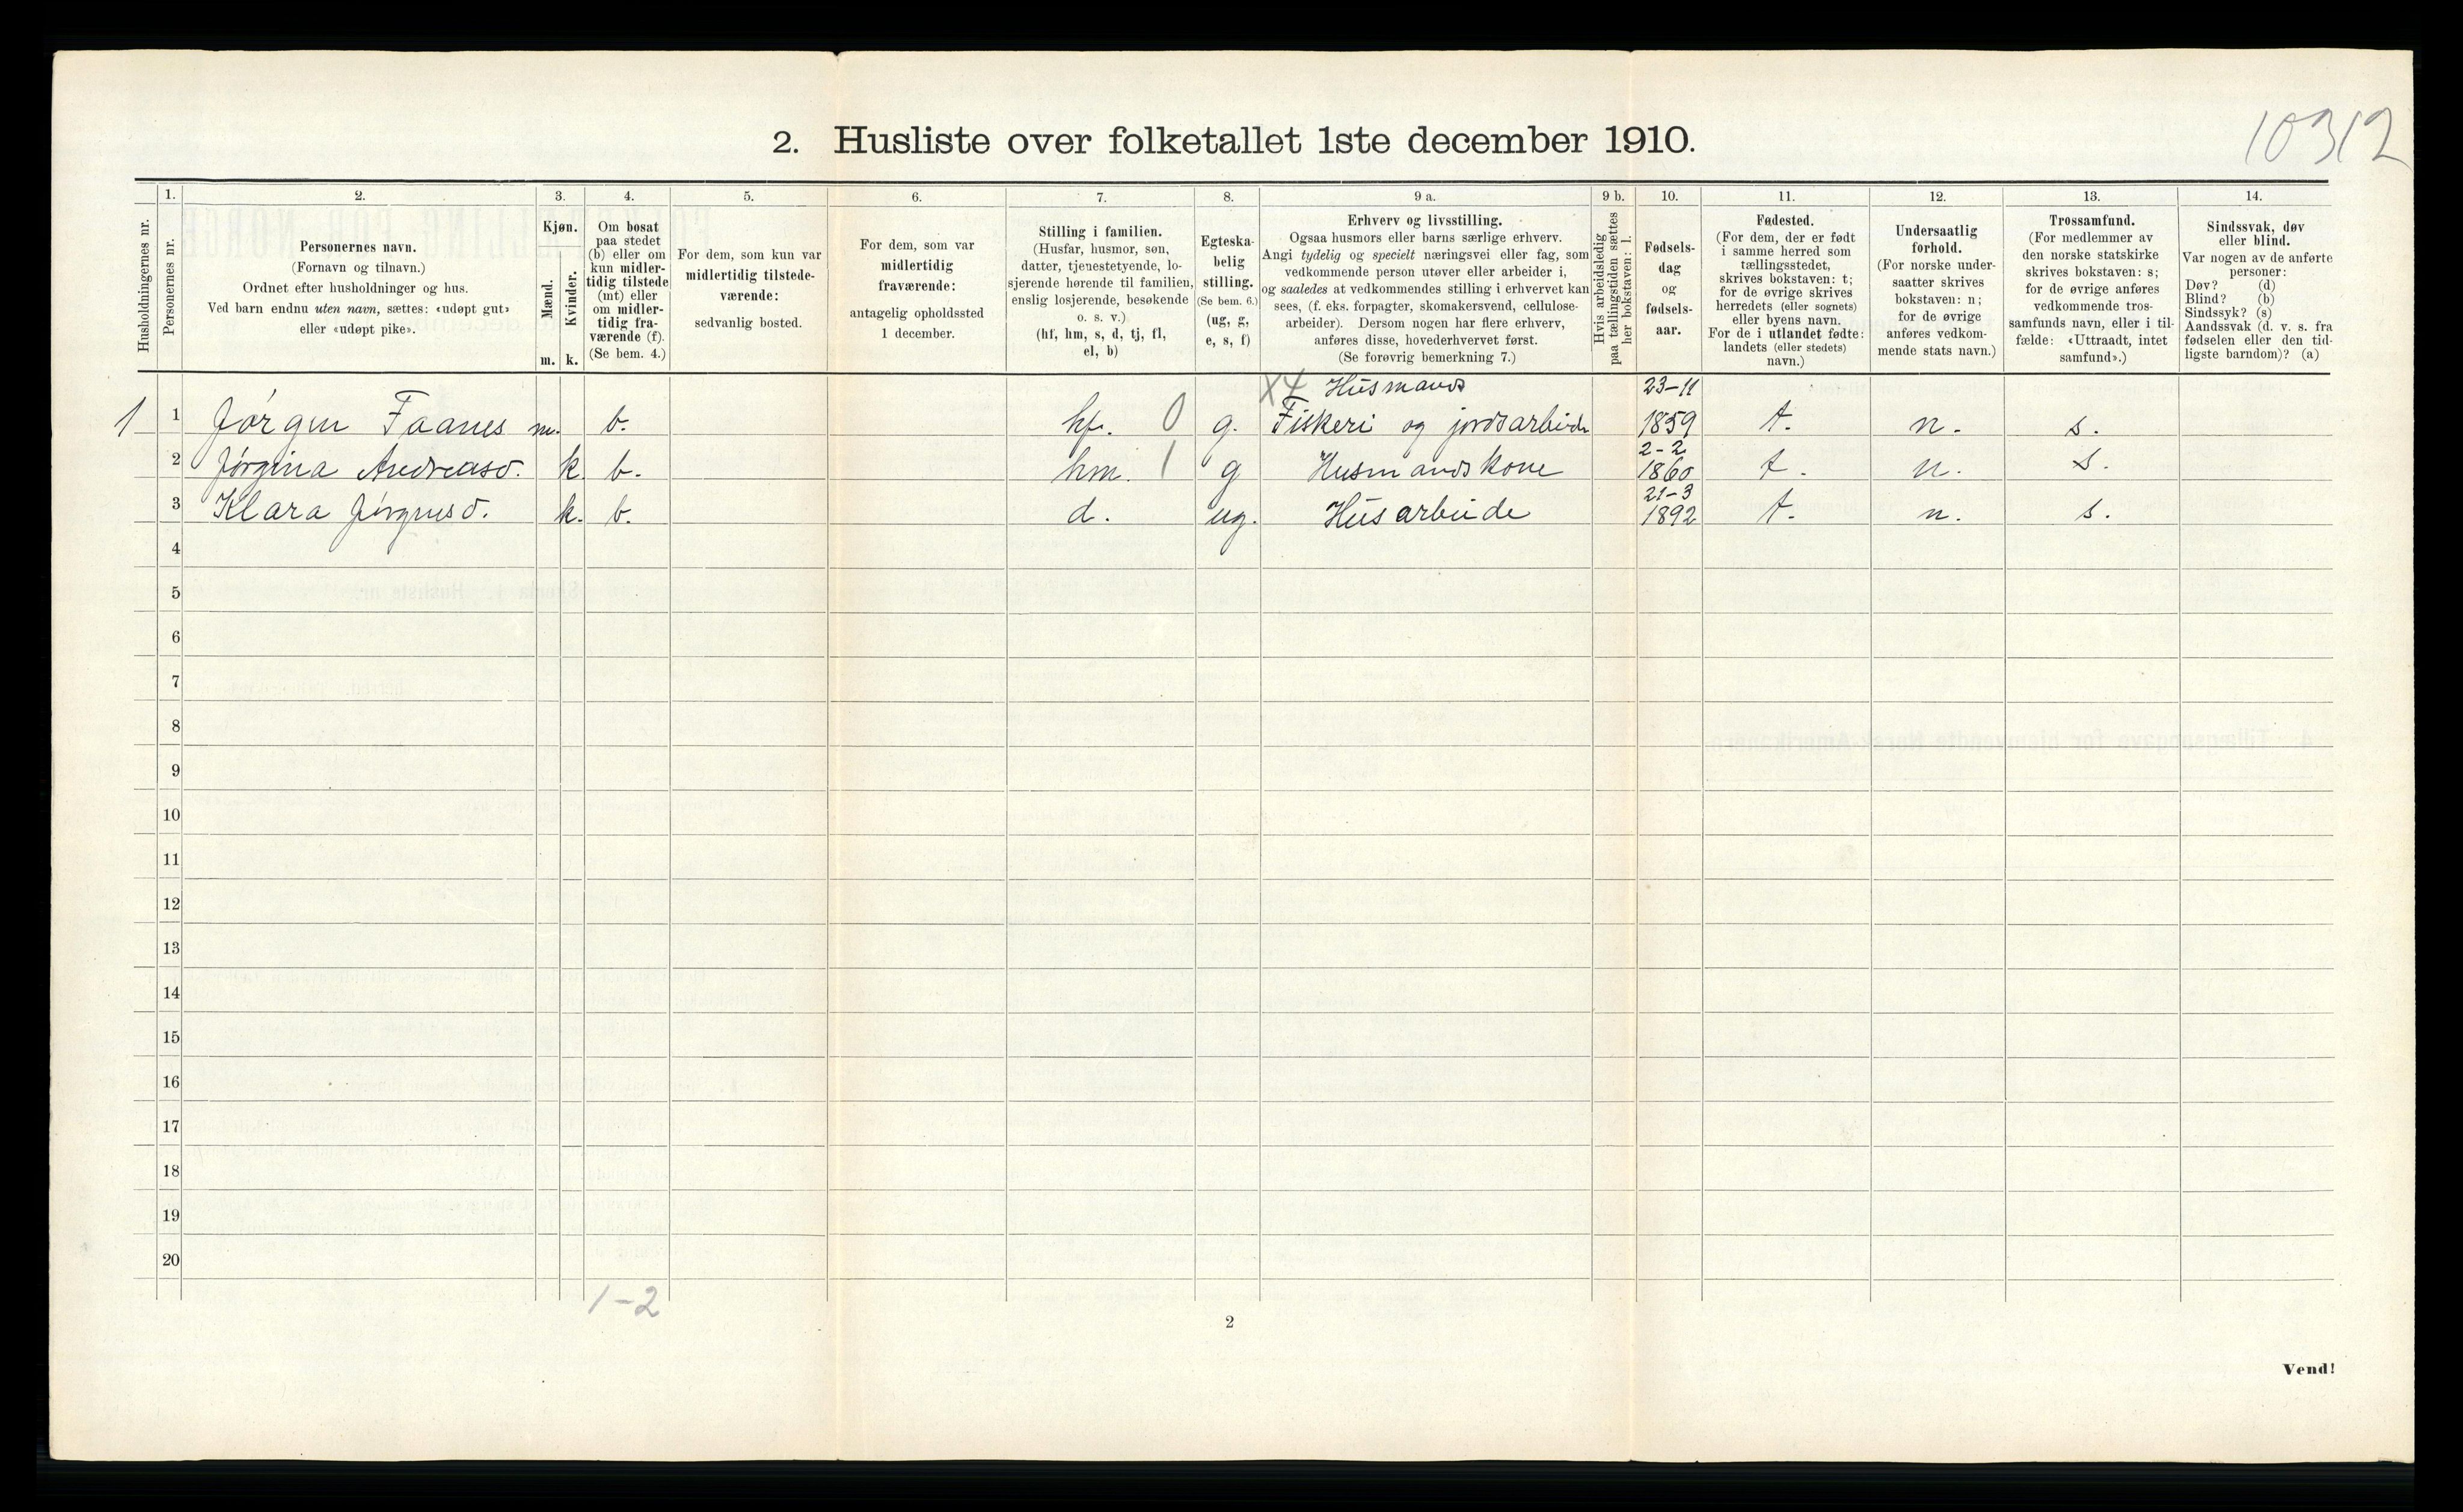 10312
2. Husliste over folketallet 1ste december 1910.
Husholdningernes nr.
1.
Personernes nr.
2.
Personernes navn.
(Fornavn og tilnavn.)
Ordnet efter husholdninger og hus.
Ved barn endnu uten navn, sættes: «udøpt gut»
eller «udøpt pike».
3.
Kjøn.
Mænd.
Kvinder.
m. k.
4.
Om bosat
paa stedet
(b) eller om
kun midler-
tidig tilstede
(mt) eller
om midler-
tidig fra-
værende (f).
(Se bem. 4.)
5.
For dem, som kun var
midlertidig tilstede-
værende:
sedvanlig bosted.
6.
For dem, som var
midlertidig
fraværende:
antagelig opholdssted
1 december.
7.
Stilling i familien.
(Husfar, husmor, søn,
datter, tjenestetyende, lo-
sjerende hørende til familien,
enslig losjerende, besøkende
o. s. v.)
(hf, hm, s, d, tj, fl,
el, b)
8.
Egteska-
belig
stilling.
(Se bem. 6.)
(ug, g,
e, s, f)
9 a.
Erhverv og livsstilling.
Ogsaa husmors eller barns særlige erhverv.
Angi tydelig og specielt næringsvei eller fag, som
vedkommende person utøver eller arbeider i,
og saaledes at vedkommendes stilling i erhvervet kan
sees, (f. eks. forpagter, skomakersvend, cellulose-
arbeider). Dersom nogen har flere erhverv,
anføres disse, hovederhvervet først.
(Se forøvrig bemerkning 7.)
9 b.
Hvis arbeidsledig
paa tællingstiden sættes
her bokstaven: l.
10.
Fødsels-
dag
og
fødsels-
aar.
11.
Fødested.
(For dem, der er født
i samme herred som
tællingsstedet,
skrives bokstaven: t;
for de øvrige skrives
herredets (eller sognets)
eller byens navn.
For de i utlandet fødte:
landets (eller stedets)
navn.)
12.
Undersaatlig
forhold.
(For norske under-
saatter skrives
bokstaven: n;
for de øvrige
anføres vedkom-
mende stats navn.)
13.
Trossamfund.
(For medlemmer av
den norske statskirke
skrives bokstaven: s;
for de øvrige anføres
vedkommende tros-
samfunds navn, eller i til-
fælde: «Uttraadt, intet
samfund».)
14.
Sindssvak, døv
eller blind.
Var nogen av de anførte
personer:
Døv? (d)
Blind? (b)
Sindssyk? (s)
Aandssvak (d. v. s. fra
fødselen eller den tid-
ligste barndom)? (a)
X4 Husmand 23-11
1 1 Jørgen Faanes m. b. hf. 0 g. Fiskeri og jordarbeide 1859 t. n. s.
2-2
2 Jørgina Andreasd. k. b. hm. 1 g Husmandskone 1860 t. n. s.
21-3
3 Klara Jørgensd. k. b. d. ug. Husarbeide 1892 t. n. s.
4
5
6
7
8
9
10
11
12
13
14
15
16
17
18
19
20
1-2
2
Vend!